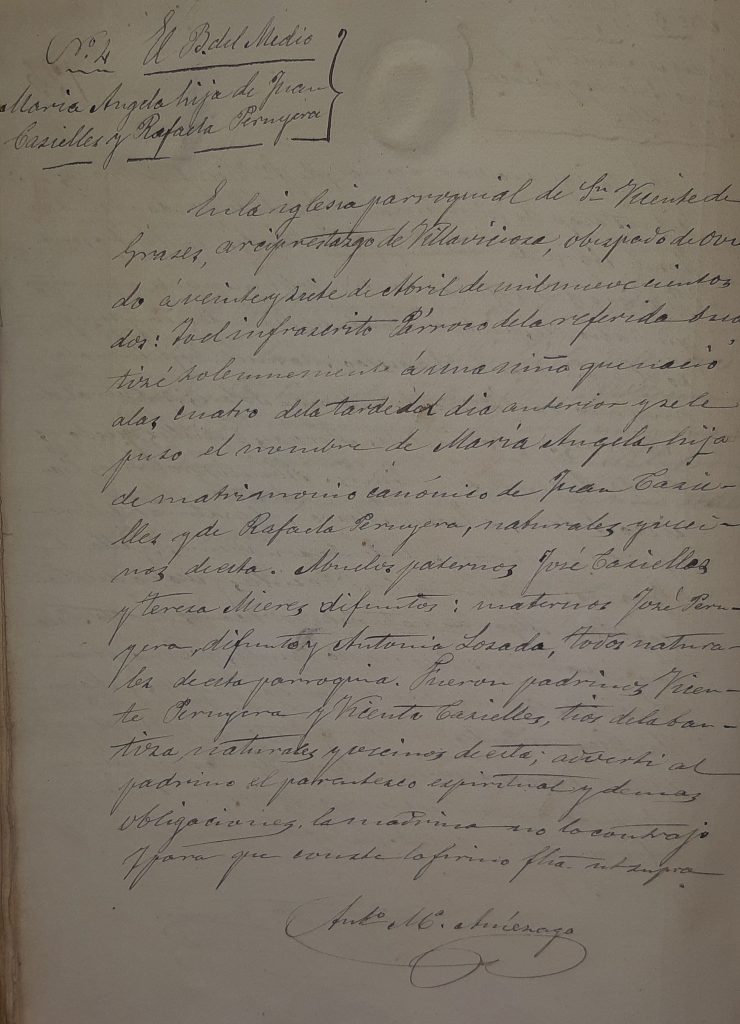 Nº. 4 El B. del Medio
Maria Angela hija de Juan
Casielles y Rafaela Peruyera
En la iglesia parroquial de Sn Vicente de
Grases, arciprestazgo de Villaviciosa, obispado de Ovie
do á veinte y siete de Abril de mil nuevecientos
dos: Yo el infrascrito Párroco de la referida bau
tizé solemnemente á una niña que nació
a las cuatro de la tarde del dia anterior y se le
puso el nombre de María Angela, hija
de matrimonio canónico de Juan Casie-
lles y de Rafaela Peruyera, naturales y veci-
nos de esta. Abuelos paternos José Casielles
y Teresa Mieres difuntos: maternos José Peru-
yera, difunto y Antonia Losada, todos natura-
les de esta parroquia. Fueron padrinos Vicen-
te Peruyera y Vicenta Casielles, tios de la bau-
tiza naturales y vecinos de esta; advertí al
padrino el parentesco espiritual y demas
obligaciones, la madrina no lo contrajo
Y para que conste la firmo fha. ut supra
Anto. Mª.